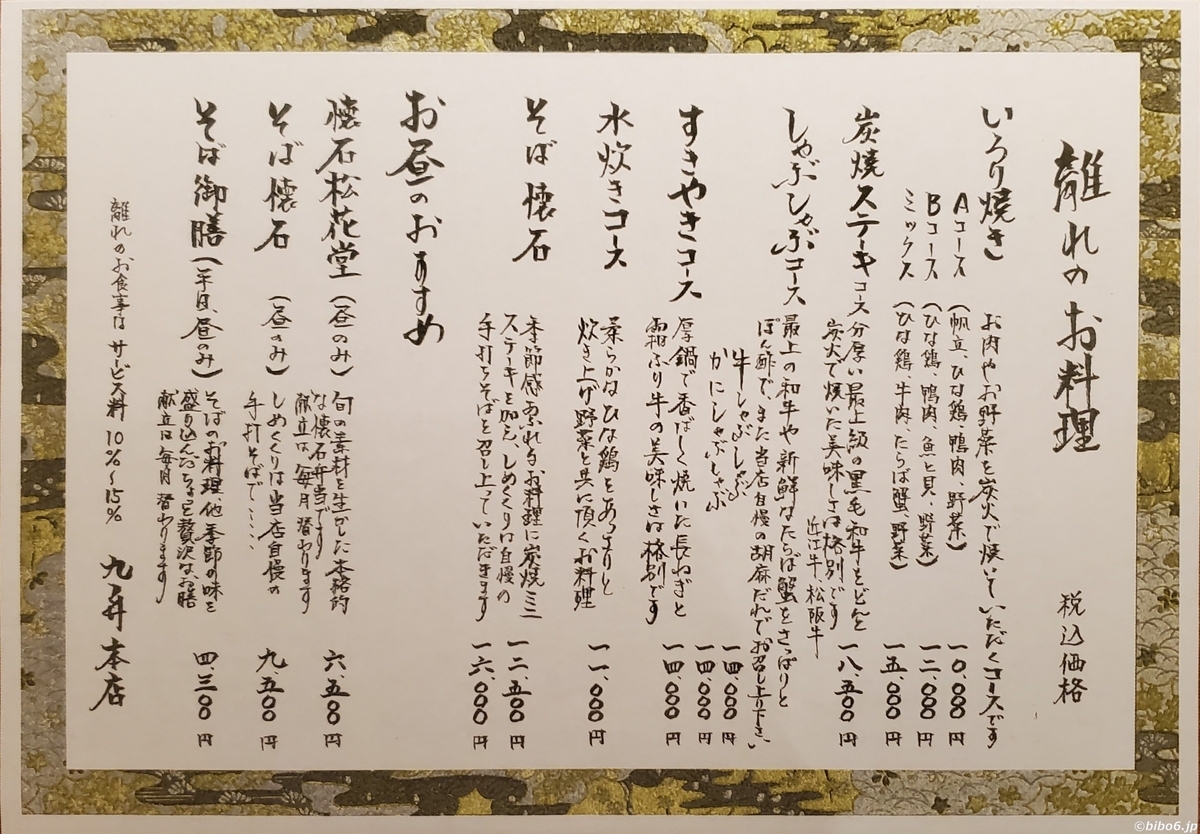 離れのお料理 税込価格
いろり焼き お肉やお野菜を炭火で焼いていただくコースです
Aコース (帆立、ひな鶏、鴨肉、野菜) 一〇.〇〇〇円
Bコース (ひな鶏、鴨肉、魚と貝、野菜) 一二.〇〇〇円
ミックス (ひな鶏、牛肉、たらば蟹、野菜) 一五.〇〇〇円
炭焼ステーキコース 分厚い最上級の黒毛和牛をどんと 一八.五〇〇円
炭火で焼いた美味しさは格別です
近江牛、松阪牛
しゃぶしゃぶコース 最上の和牛や新鮮なたらば蟹をさっぱりと
ぽん酢で、また当店自慢の胡麻だれでお召し上り下さい
牛しゃぶしゃぶ 一四.〇〇〇円
かにしゃぶしゃぶ 一四.〇〇〇円
すきやきコース 厚鍋で香ばしく焼いた長ねぎと 一四.〇〇〇円
霜ふり牛の美味しさは格別です
水炊きコース 柔らかなひな鶏をあっさりと 一一.〇〇〇円
炊き上げ野菜と共に頂くお料理
そば懐石 季節感あふれるお料理に炭焼ミニ 一二.五〇〇円
ステーキを加え、しめくくりは自慢の
手打ちそばを召し上っていただきます 一六.〇〇〇円
お昼のおすすめ
懐石松花堂(昼のみ) 旬の素材を生かした本格的 六.五〇〇円
な懐石弁当です
献立は、毎月替わります
そば懐石 (昼のみ) しめくくりは当店自慢の 九.五〇〇円
手打そばで……
そば御膳(平日、昼のみ) そばのお料理、他季節の味を 四.三〇〇円
盛り込んだちょっと贅沢なお膳
献立は毎月替わります
離れのお食事は サービス料10%~15% 九丹本店
©bibo6.jp